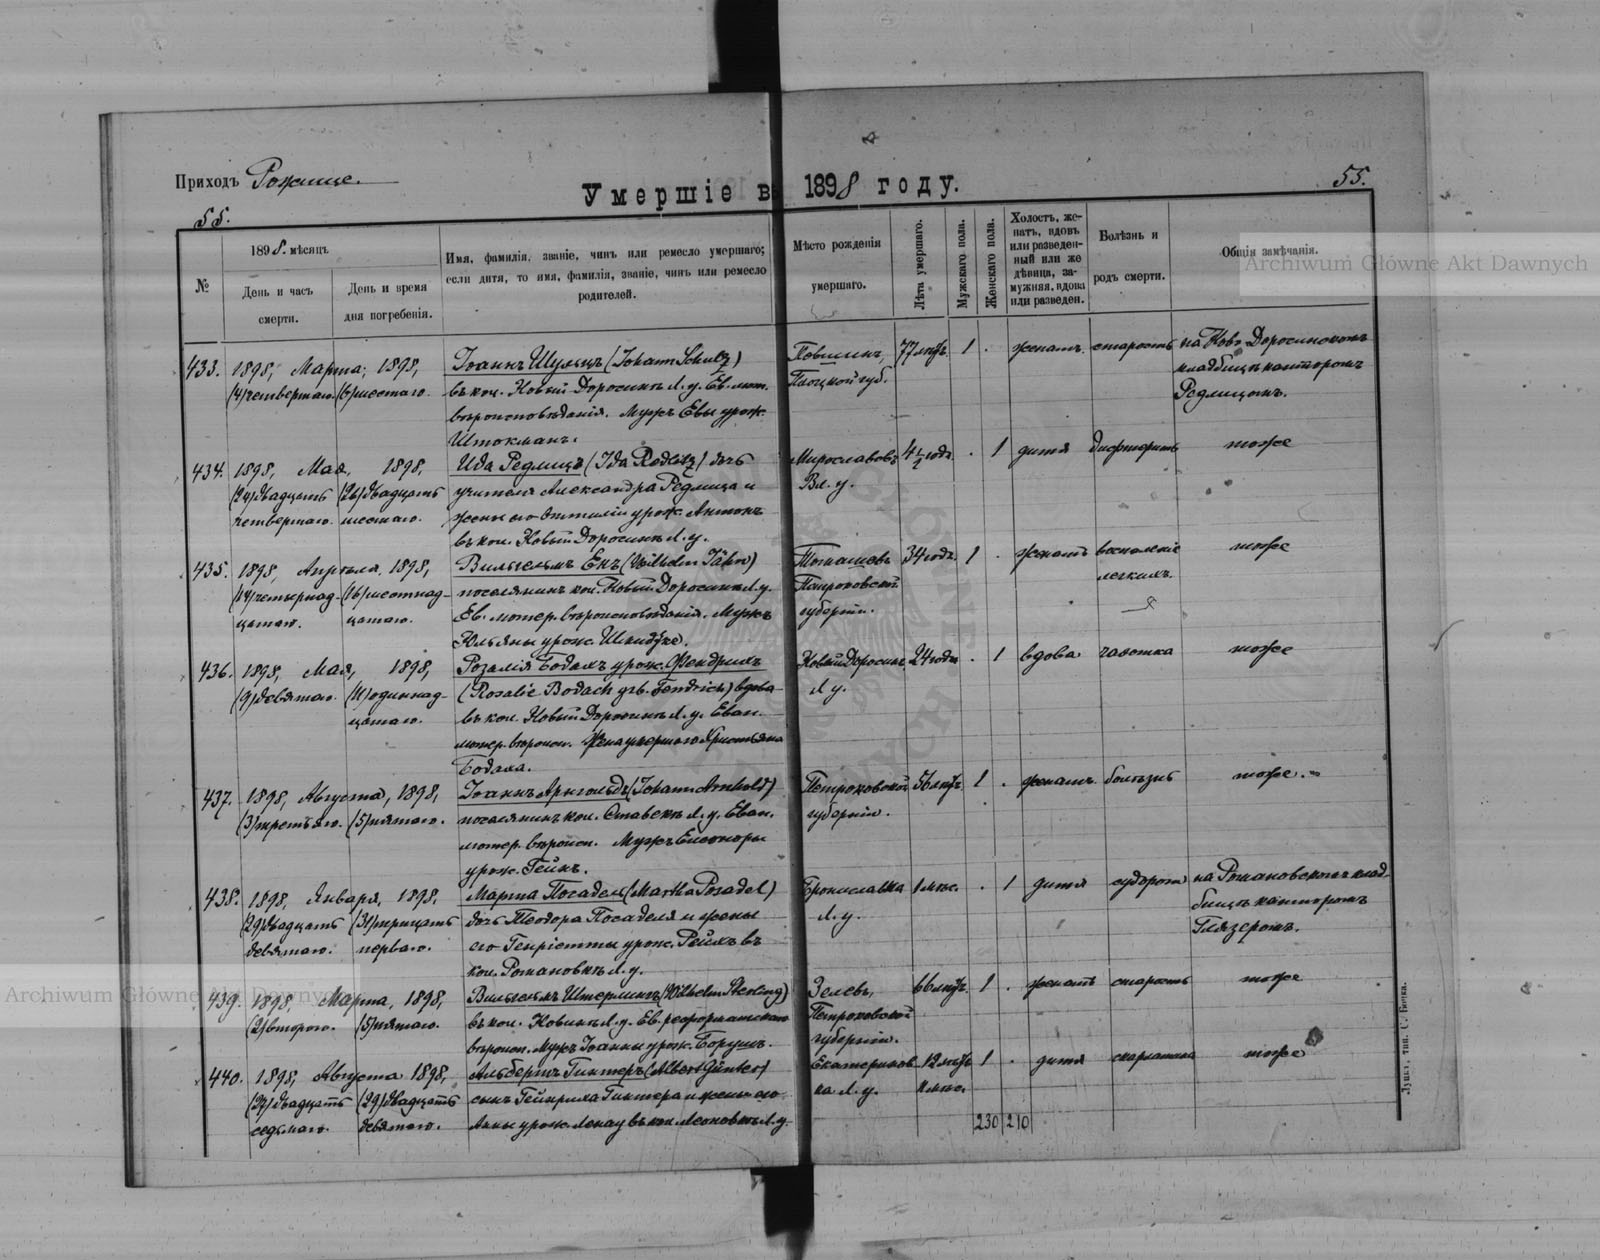 Приходъ Рожище.
Умершіе въ 1898 году.
55.
55.
№
1898. мѣсяцъ
День и часъ смерти.
День и время дня погребенія.
Имя, фамилія, званіе, чинъ или ремесло умершаго;
если дитя, то имя, фамилія, званіе, чинъ или ремесло
родителей.
Мѣсто рожденія
умершаго.
Лѣта умершаго.
Мужскаго пола.
Женскаго пола.
Холостъ, же-
натъ, вдовъ
или разведен-
ный или же
дѣвица, за-
мужняя, вдова
или разведен.
Болѣзнь и
родъ смерти.
Общія замѣчанія.
Archiwum Główne Akt Dawnych
433. 1898, Марта, 1898, Іоаннъ Шульцъ (Johann Schulz) Плоцкой губ. 77 лѣтъ. 1 . женатъ. старость на Ново Доросинскомъ
(4) четвертаго. (6) шестаго. въ кол. Новый Доросинъ Л. у. Ев. лют. кладбищѣ канторомъ
вѣроисповѣданія. Мужъ Евы урож. Редлицомъ.
Штокманъ.
434. 1898, Мая, 1898, Ида Редлицъ (Ida Redlitz) дочь Мирославовъ 4½ года . 1 дитя дифтеритъ тоже
(24) двадцать (26) двадцать учителя Александра Редлица и Вл. у.
четвертаго. шестаго. жены его Оттиліи урож. Антонъ
въ кол. Новый Доросинъ Л. у.
435. 1898, Апрѣля, 1898, Вильгельмъ Енъ (Wilhelm Jähn) Томашевъ 34 года. 1 . женатъ воспаленіе тоже
(14) четырнад- (16) шестнад- поселянинъ кол. Новый Доросинъ Л. у. Петроковской легкихъ.
цатаго. цатаго. Ев. лютер. вѣроисповѣданія. Мужъ губерніи.
Юльяны урож.
436. 1898, Мая, 1898, Розалія Бодахъ урож. Фендрихъ Новый Доросинъ 24 года . 1 вдова чахотка тоже
(9) девятаго. (11) одиннад- (Rosalie Bodach geb. Fendrich) вдова Л у.
цатаго. въ кол. Новый Доросинъ Л. у. Еван.
лютер. вѣроисп. Жена умершаго Христьяна
Бодаха.
437. 1898, Августа, 1898, Іоаннъ Арнгольдъ (Johann Arnhold) Петроковской 56 лѣтъ. 1 . женатъ болѣзнь тоже.
(3) третьяго. (5) пятаго. поселянинъ кол. Ставекъ Л. у. Еван. губерніи.
лютер. вѣроисп. Мужъ Елеоноры
урож. Гейнъ.
438. 1898, Января, 1898, Марта Посадель (Martha Posadel) Брониславка 1 мѣс. . 1 дитя судороги на Романовскомъ клад-
(29) двадцать (31) тридцать дочь Теодора Посаделя и жены Л. у. бищѣ канторомъ
девятаго. перваго. его Генріетты урож. Реймъ въ Глязеромъ.
кол. Романовкѣ Л. у.
439. 1898, Марта, 1898, Вильгельмъ Штерлингъ (Wilhelm Sterling) Зелевъ, 66 лѣтъ. 1 . женатъ старость тоже
(2) второго. (5) пятаго. въ кол. Л. у. Ев. реформатскаго Петроковской
вѣроисп. Мужъ Іоанны урож. Борушъ. губерніи.
440. 1898, Августа 1898, Альбертъ Гинтеръ (Albert Günter) Екатеринов- 12 лѣтъ 1 . дитя скарлатина тоже
(27) двадцать (29) двадцать сынъ Гейнриха Гинтера и жены его ка Л. у. мѣс.
седьмаго. девятаго. Анны урож. въ кол. Леоновкѣ Л. у.
230 210
Луцкъ, тип. С. Бичка.
Archiwum Główne Akt Dawnych